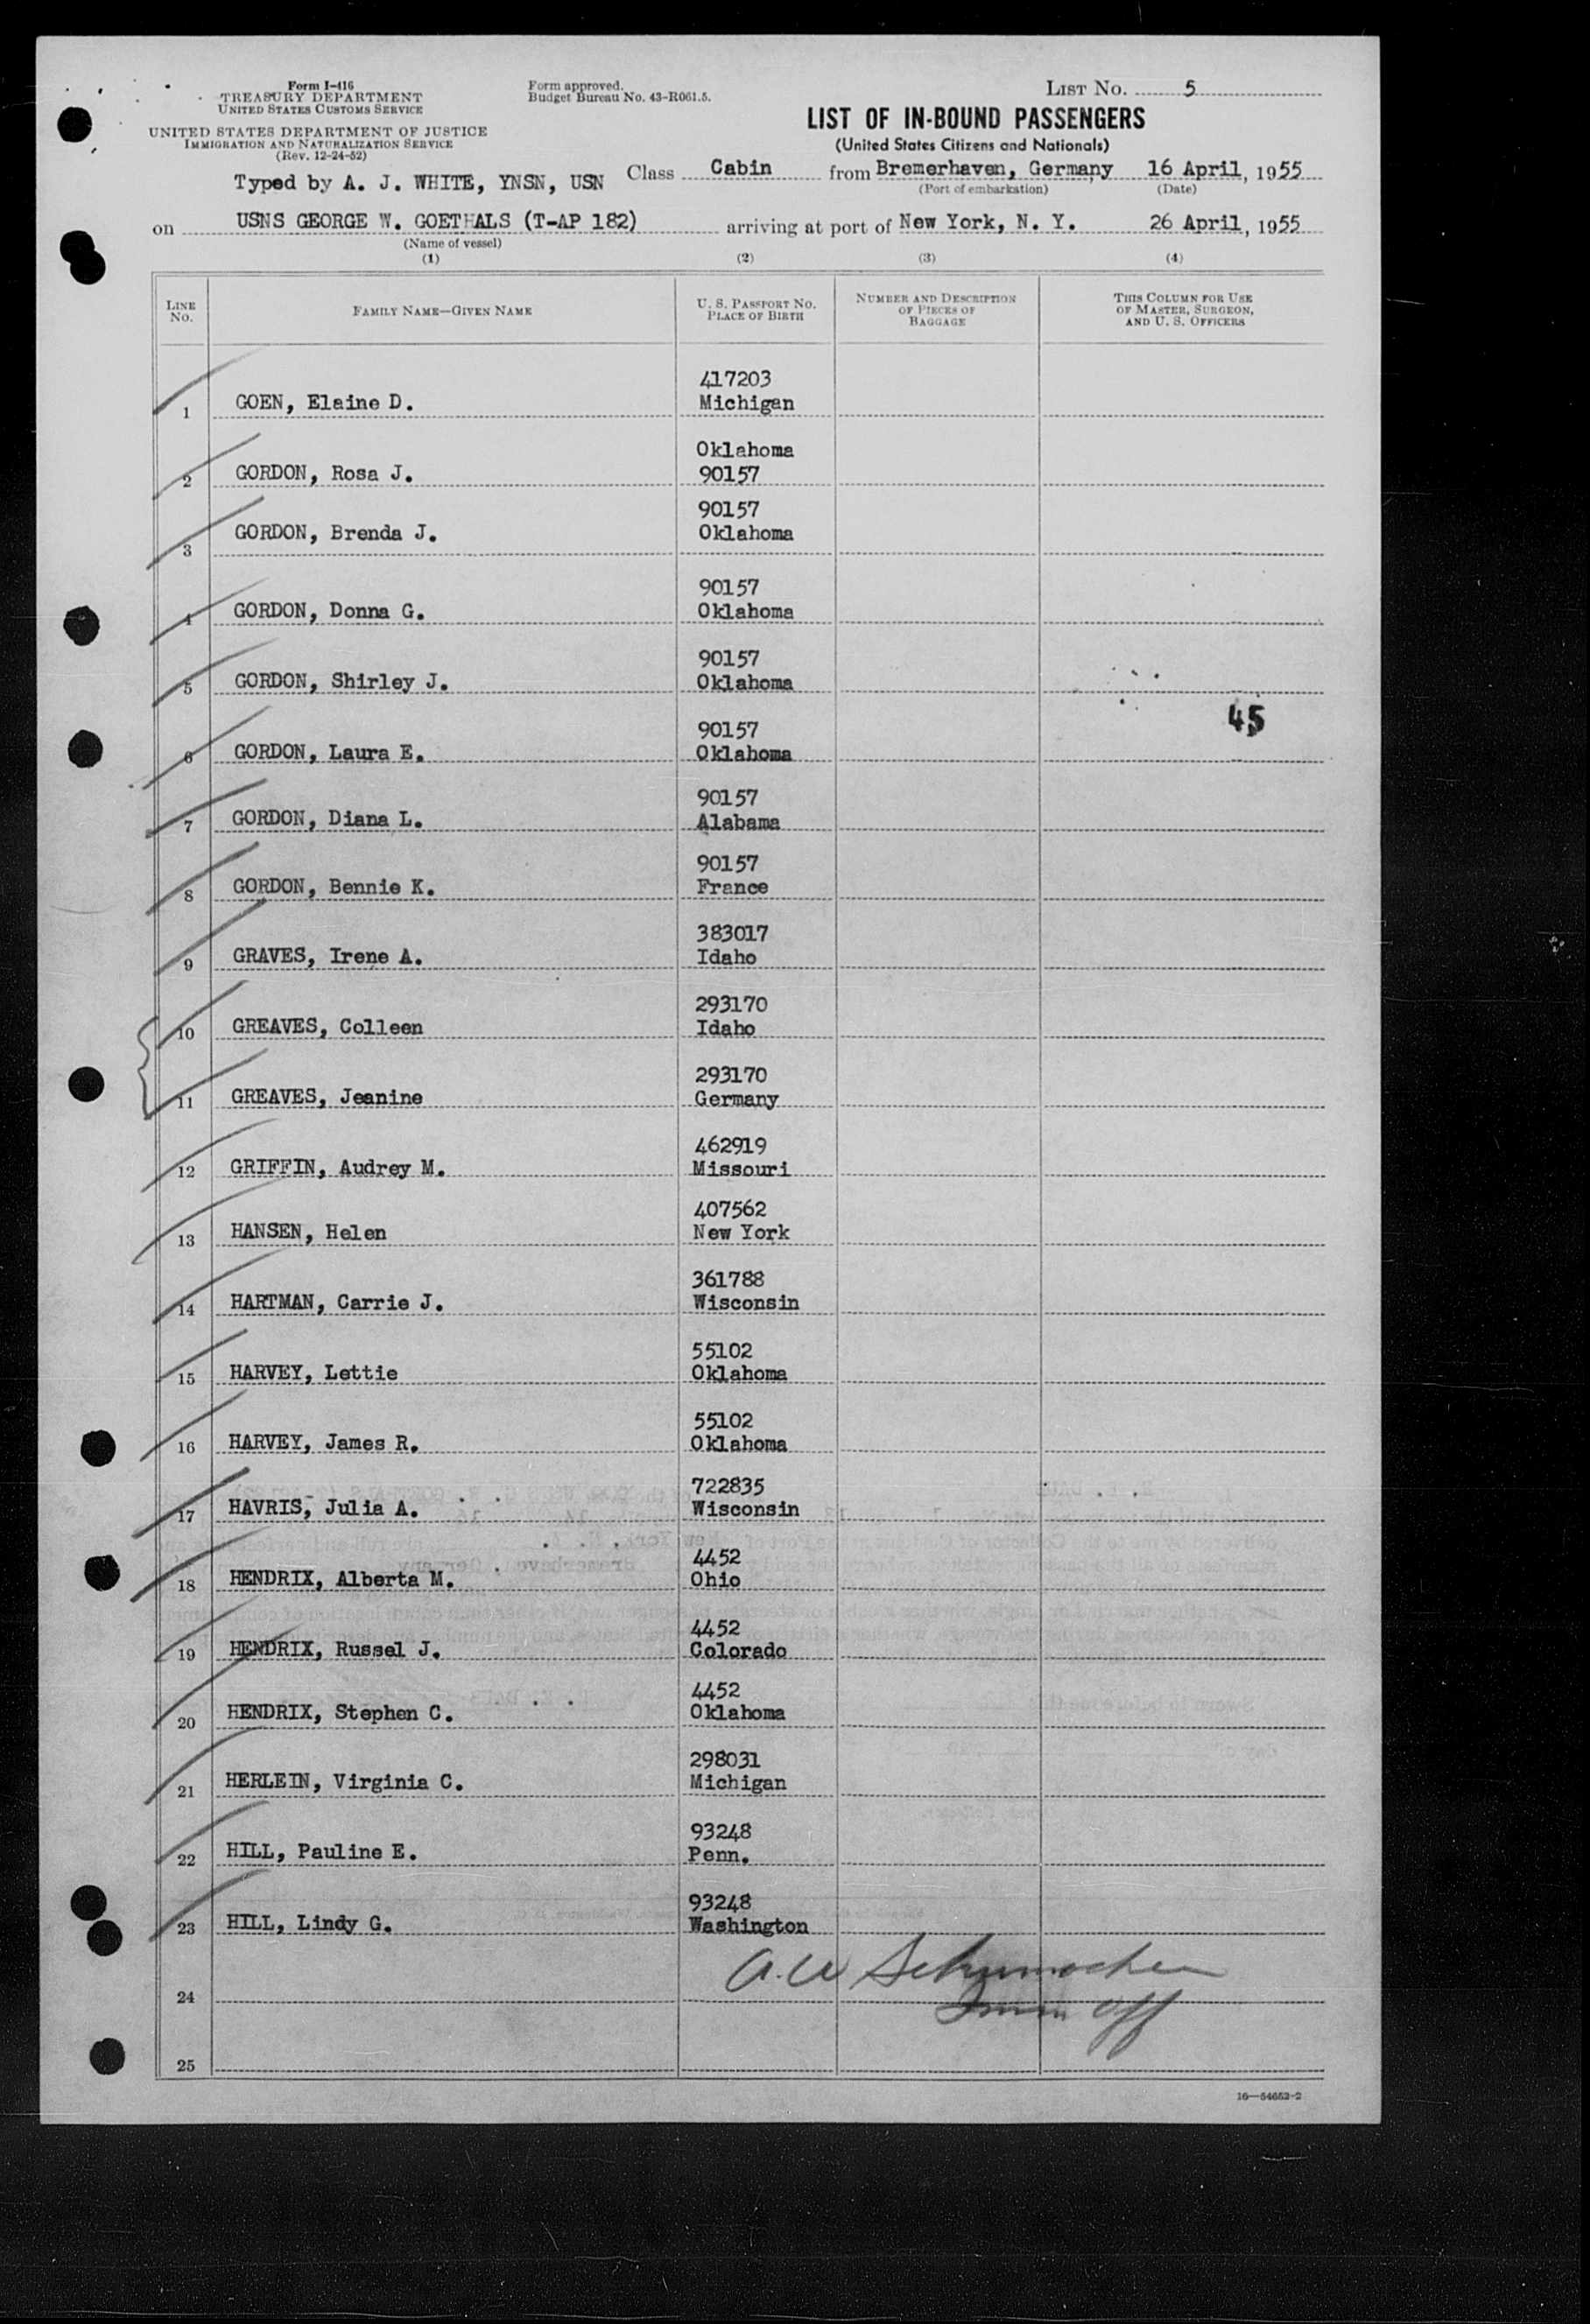 Form I-416
TREASURY DEPARTMENT
UNITED STATES CUSTOMS SERVICE
UNITED STATES DEPARTMENT OF JUSTICE
IMMIGRATION AND NATURALIZATION SERVICE
(Rev. 12-24-52)
Form approved.
Budget Bureau No. 43-R061.5.
LIST No. 5
LIST OF IN-BOUND PASSENGERS
(United States Citizens and Nationals)
Typed by A. J. WHITE, YNSN, USN Class Cabin from Bremerhaven, Germany 16 April, 1955
(Port of embarkation) (Date)
on USNS GEORGE W. GOETHALS (T-AP 182) arriving at port of New York, N. Y. 26 April, 1955
(Name of vessel)
(1) (2) (3) (4)
LINE NO. FAMILY NAME—GIVEN NAME U. S. PASSPORT NO. PLACE OF BIRTH NUMBER AND DESCRIPTION OF PIECES OF BAGGAGE THIS COLUMN FOR USE OF MASTER, SURGEON, AND U. S. OFFICERS
417203
1 GOEN, Elaine D. Michigan
Oklahoma
2 GORDON, Rosa J. 90157
90157
3 GORDON, Brenda J. Oklahoma
90157
4 GORDON, Donna G. Oklahoma
90157
5 GORDON, Shirley J. Oklahoma
45
90157
6 GORDON, Laura E. Oklahoma
90157
7 GORDON, Diana L. Alabama
90157
8 GORDON, Bennie K. France
383017
9 GRAVES, Irene A. Idaho
293170
10 GREAVES, Colleen Idaho
293170
11 GREAVES, Jeanine Germany
462919
12 GRIFFIN, Audrey M. Missouri
407562
13 HANSEN, Helen New York
361788
14 HARTMAN, Carrie J. Wisconsin
55102
15 HARVEY, Lettie Oklahoma
55102
16 HARVEY, James R. Oklahoma
722835
17 HAVRIS, Julia A. Wisconsin
4452
18 HENDRIX, Alberta M. Ohio
4452
19 HENDRIX, Russel J. Colorado
4452
20 HENDRIX, Stephen C. Oklahoma
298031
21 HERLEIN, Virginia C. Michigan
93248
22 HILL, Pauline E. Penn.
93248
23 HILL, Lindy G. Washington
A.W Schumacher
24
Imm Off
25
16—54652-2